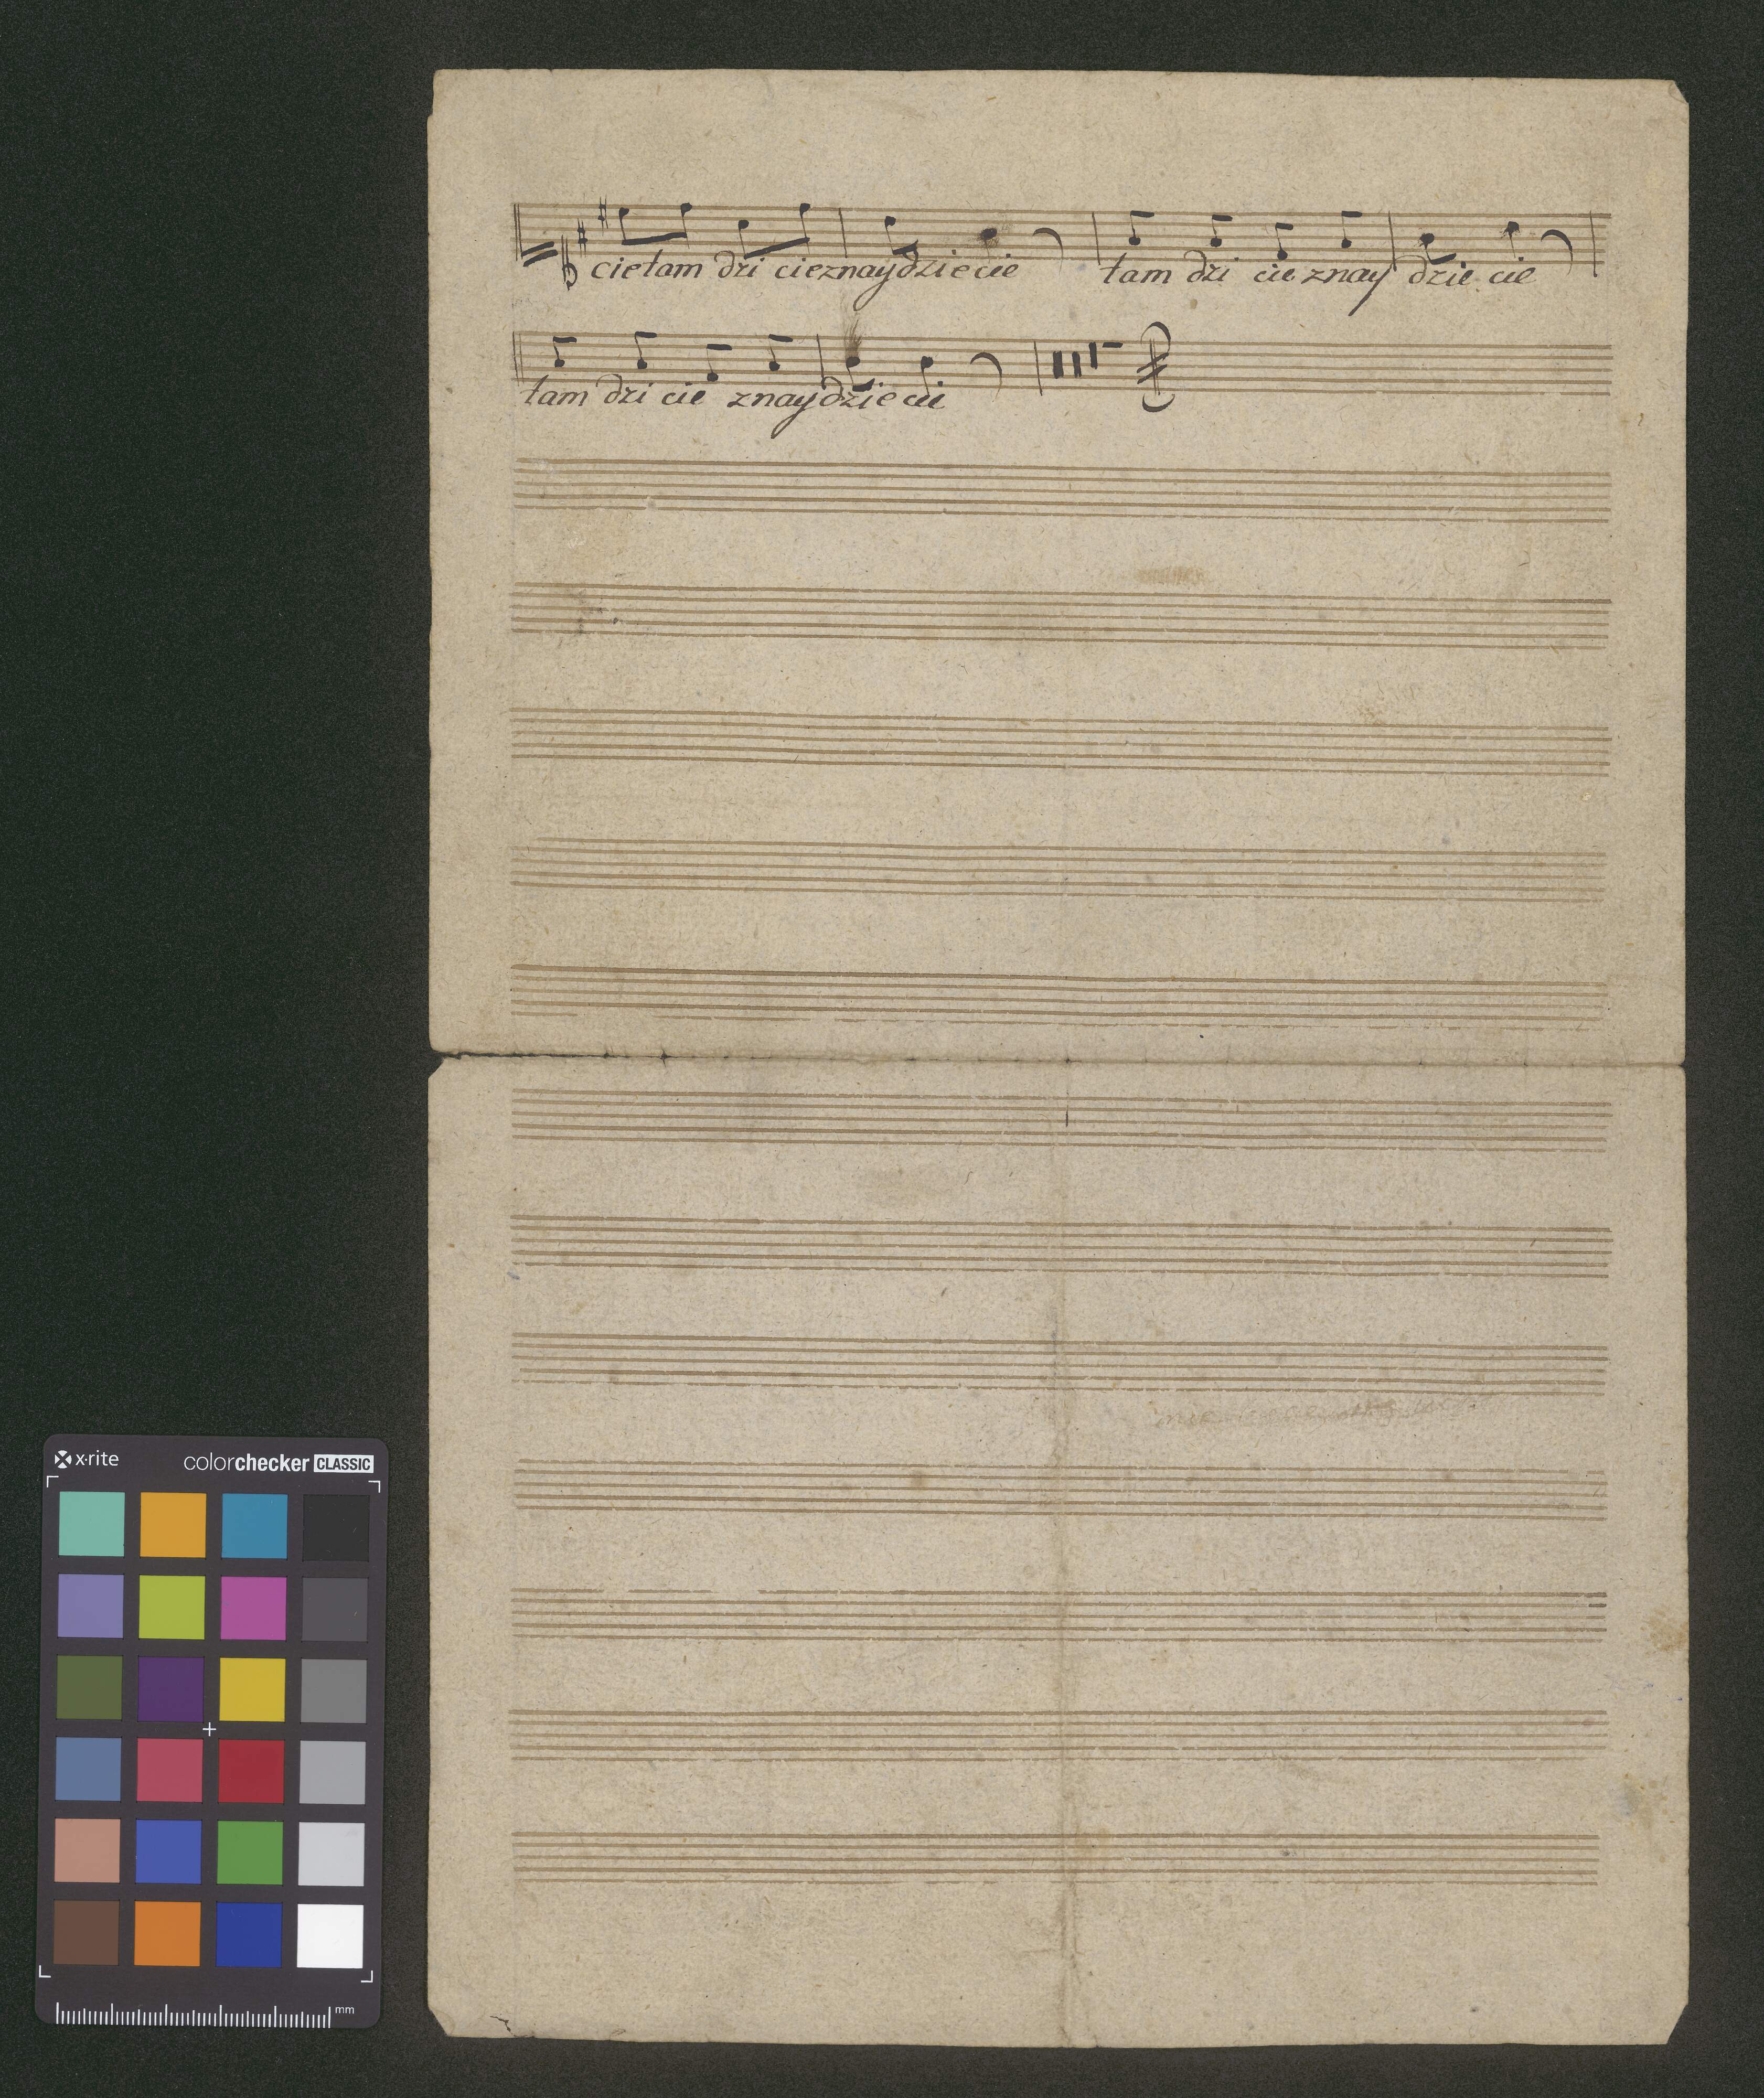 cie tam dzi cie znay dzie cie tam dzi cie znay dzie cie
tam dzi cie znay dzie cie
x·rite colorchecker CLASSIC
mm